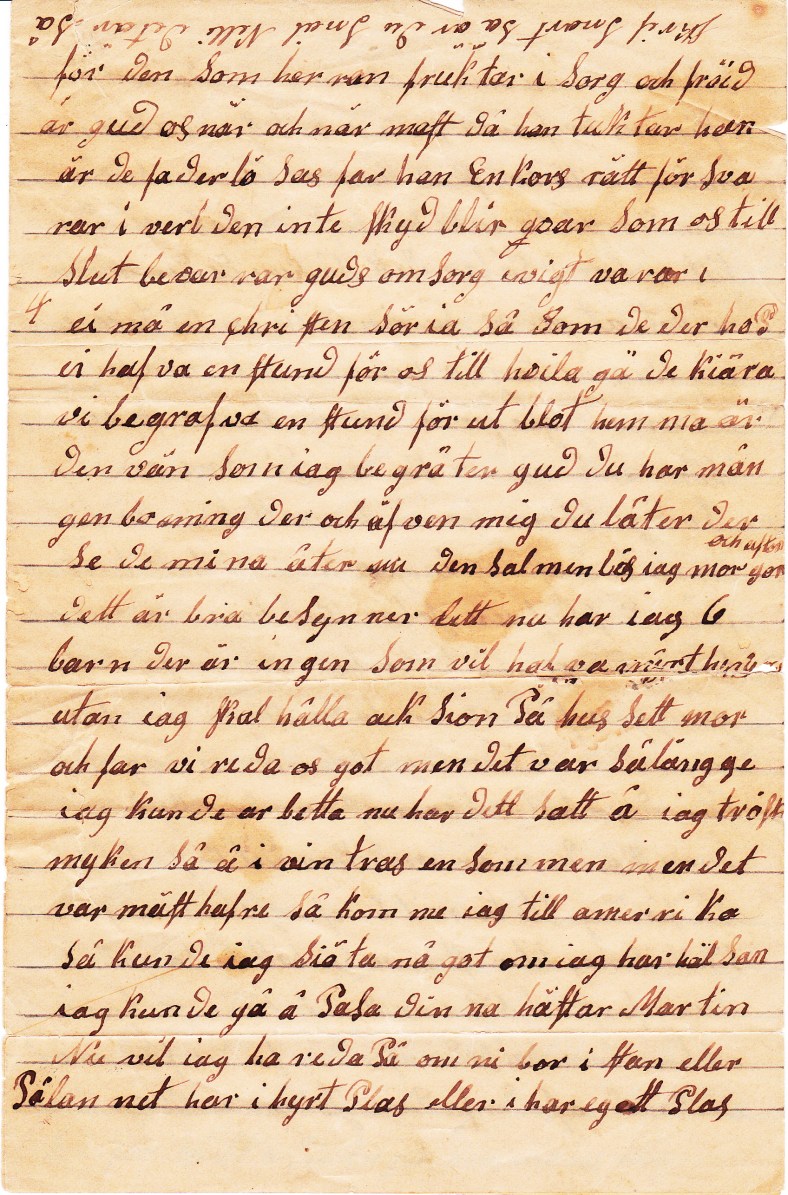 skrif snart så ar du snäl Nelli Det är så
för den som her ran fruktar i sorg och fröid
är gud os när och när mast då han tuktar han
är de fa der lö sas far han Enkors rätt för sva
rar i verl den inte skyd blir qvar som os till
slut bevar rar guds omsorg evigt va rar i
4 ei må en chri sten sör ia så som de der hop
ei haf va en stund för os till hvila gå de kiära
vi begraf va en stund för ut blot hem ma är
den vän som iag be gråter gud du har mån
gen boning der och äf ven mig du låter der
se de mi na åter den salmen läs iag mor gon
och afton
dett är bra be synner lett nu har iag 6
barn der är in gen som vil haf va
utan iag skal hålla ack sion På hus sett mor
och far vi re da os got men det var så länge
iag kun de ar betta nu har dett satt å iag trösk
myken så å i vin tras en som men men det
var mäst haf re så kom me iag till amer ri ka
så kun de iag siöta nå got om iag har häl san
iag kun de gå å Pasa din na hästar Martin
Nu vil iag ha re da På om ni bor i stan eller
På lan net har i hyrt Plas eller i har egett Plas